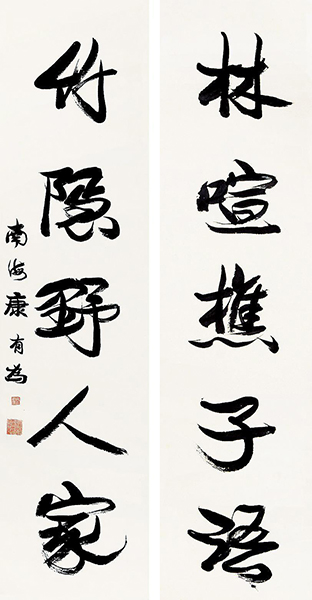 林喧樵子語
竹隱野人家
南海康有為